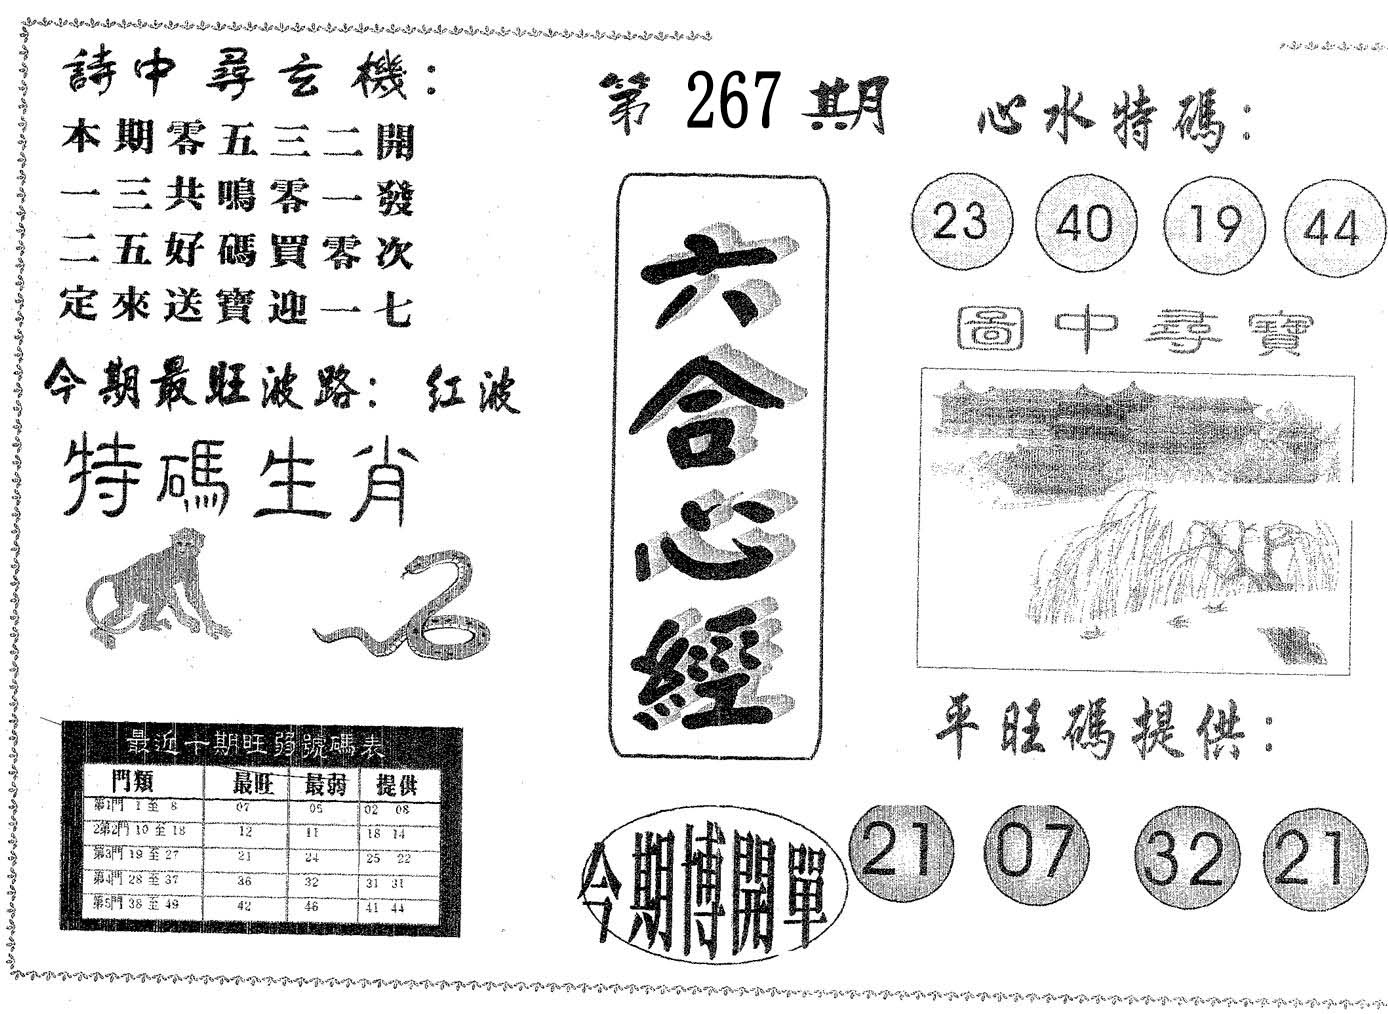 詩中尋玄機：
本期零五三二開
一三共鳴零一發
二五好碼買零次
定來送寶迎一七
今期最旺波路：紅波
特碼生肖
最近十期旺弱號碼表
門類 最旺 最弱 提供
第1門 1 至 8 07 05 02 08
2第2門 10 至 18 12 11 18 14
第3門 19 至 27 21 24 25 22
第4門 28 至 37 36 32 31 31
第5門 38 至 49 42 46 41 44
第 267 期
六合心經
今期博開單
心水特碼：
23 40 19 44
圖中尋寶
平旺碼提供：
21 07 32 21